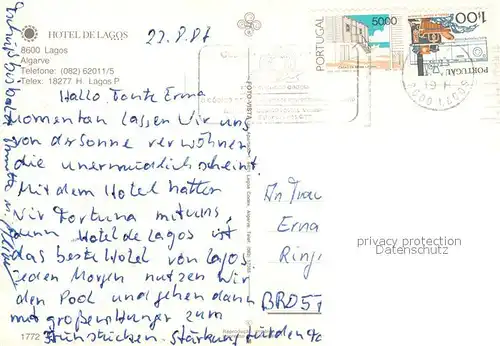 HOTEL DE LAGOS
8600 Lagos
Algarve
Telefone: (082) 62011/5
Telex: 18277 H. Lagos P
22.8.87
Hallo Tante Erna
momentan lassen wir uns
von der Sonne verwöhnen
die unermüdlich scheint.
Mit dem Hotel hatten
wir Fortuna mit uns,
denn Hotel de Lagos ist
das beste Hotel von Lagos.
Jeden Morgen nutzen wir
den Pool und gehen dann
mit großem Hunger zum
Frühstücken. Stärkung für den
1772
FOTO-VISTA
PORTUGAL
5000
1$00
PORTUGAL
8600 LAGOS
An Frau
Erna
Ring
BRD 57
privacy protection
Datenschutz